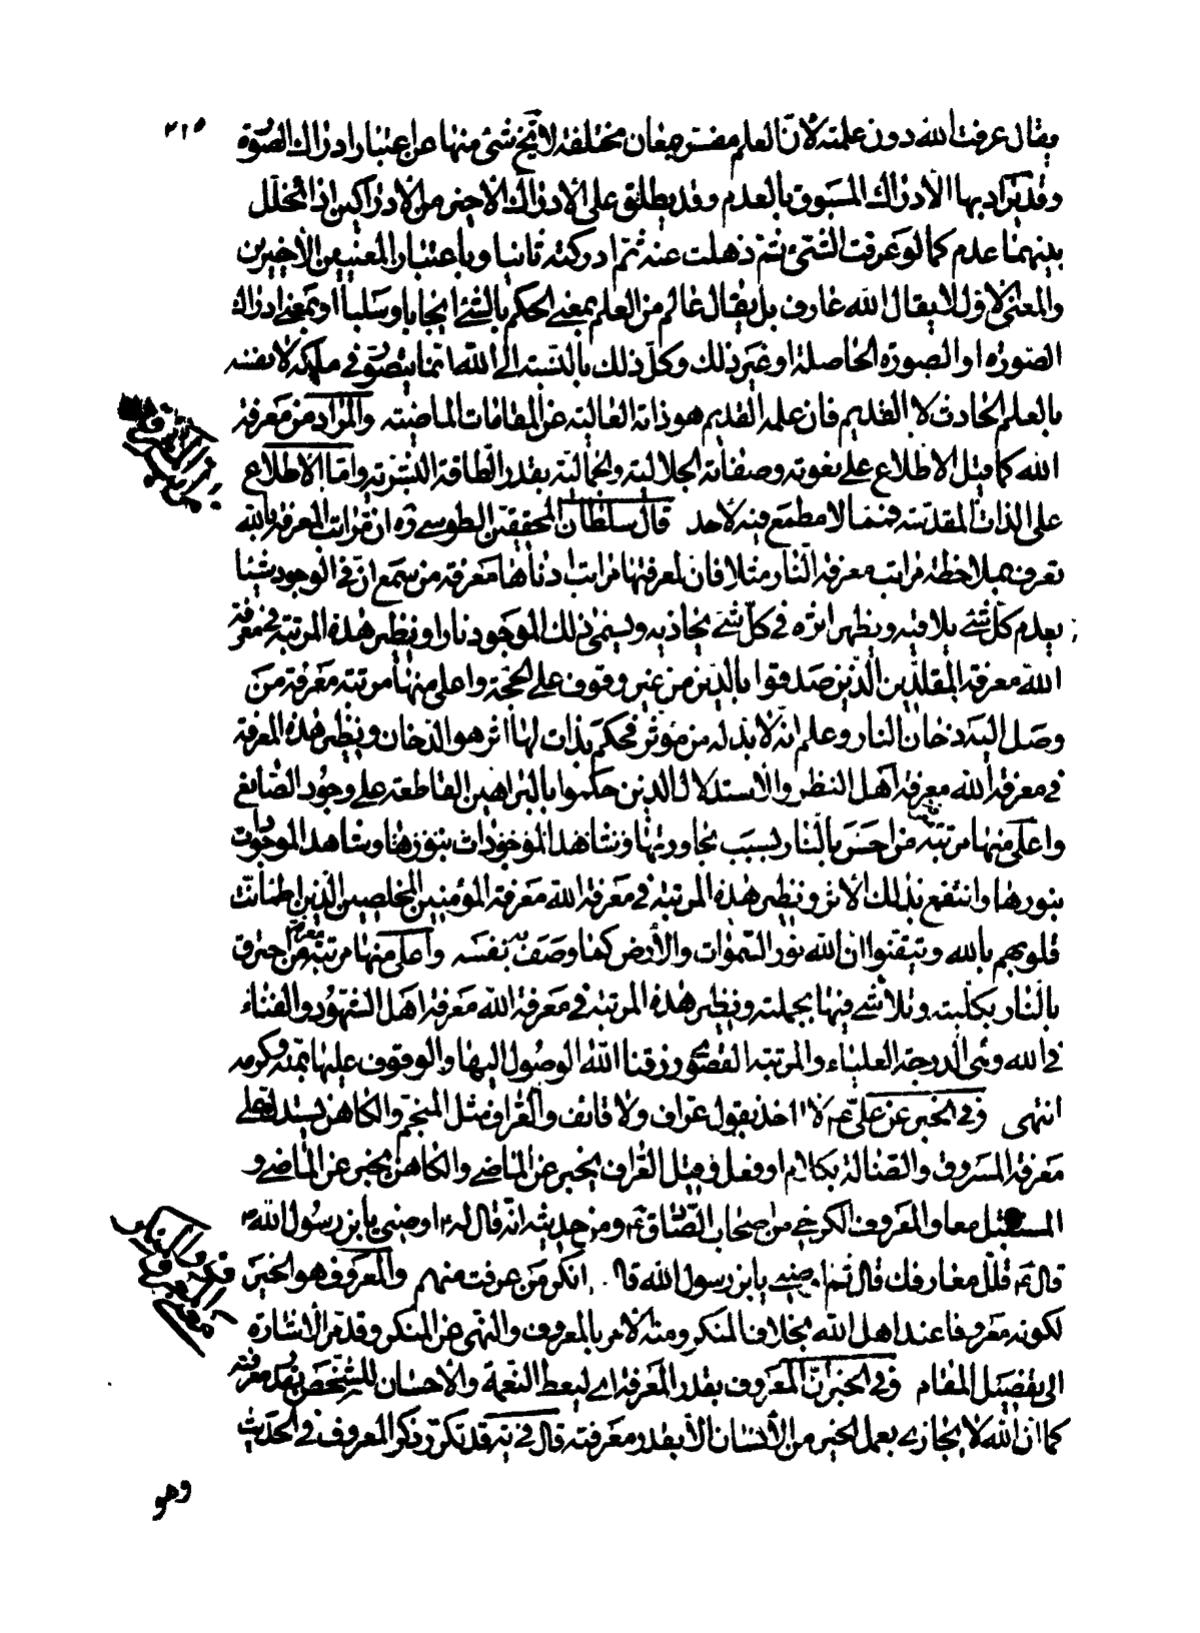 ٢١٥
يقال عرفت الله دون علمته لأنّ العلم مفسّر بمعان مختلفة لا يخ شئ منها عن اعتبار ادراك الصّورة
وقد يراد بها الادراك المسبوق بالعدم وقد يطلق على الادراك الاخير من الادراكين اذا تخلّل
بينهما عدم كما لو عرفت الشئ ثم ذهلت عنه ثم ادركته ثانيا وباعتبار المعنيين الاخيرين
والمعنى الاول لا يقال الله عارف بل يقال عالم من العلم بمعنى الحكم بالشئ ايجابا وسلبا او بمعنى ادراك
الصورة او الصورة الحاصلة او غير ذلك وكلّ ذلك بالنّسبة الى الله انما يتصوّر في ملكه لا نفسه
بالعلم الحادث لا القديم فان علمه القديم هو ذاته العالية عن المقامات الماضية والمراد من معرفة
الله كما قيل الاطلاع على نعوته وصفاته الجلالية والجمالية بقدر الطاقة البشرية وامّا الاطلاع
على الذات المقدسة فمما لا مطمع فيه لأحد قال سلطان المحققين الطوسي ره ان مراتب المعرفة بالله
تعرف بملاحظة مراتب معرفة النّار مثلا فان لمعرفتها مراتب ادناها معرفة من سمع انّ في الوجود شيئا
يعدم كلّ شئ يلاقيه ويظهر اثره في كلّ شئ يحاذيه ويسمّى ذلك الموجود نارا ونظير هذه المرتبة في معرفة
الله معرفة المقلّدين الّذين صدقوا بالدّين من غير وقوف على الحجّة واعلى منها مرتبة معرفة من
وصل اليه دخان النار وعلم انّه لا بدّ له من مؤثر فحكم بذات لها اثر هو الدّخان ونظير هذه المعرفة
في معرفة الله معرفة اهل النظر والاستدلال الذين حكموا بالبراهين القاطعة على وجود الصّانع
واعلى منها مرتبة معرفة من احسّ بالنّار بسبب مجاورتها وشاهد الموجودات بنورها وشاهد الموجودات
بنورها وانتفع بذلك الأثر ونظير هذه المرتبة في معرفة الله معرفة المؤمنين المخلصين الّذين اطمأنّت
قلوبهم بالله وتيقّنوا ان الله نور السّموات والأرض كما وصف به نفسه واعلى منها مرتبة معرفة من احترق
بالنّار بكلّيته وتلاشى فيها بجملته ونظير هذه المرتبة في معرفة الله معرفة اهل الشّهود والفناء
في الله وهي الدّرجة العلياء والمرتبة القصوى رزقنا الله الوصول اليها والوقوف عليها بمنّه وكرمه
انتهى وفي الخبر عن علي ع لا اخذ بقول عرّاف ولا قائف والعرّاف مثل المنجّم والكاهن يستدل على
معرفة المسروق والضالة بكلام او فعل وقيل العرّاف يخبر عن الماضي والكاهن يخبر عن الماضي و
المستقبل معا والمعروف الكرخي من اصحاب الصّادق ع ومن حديثه انّه قال له ع اوصني يا بن رسول الله ص
قال ع قلّل معارفك قال ثم زدني يا بن رسول الله قال انكر من عرفت منهم والمعروف هو الخير
لكونه معروفا عند اهل الله بخلاف المنكر ومنه الامر بالمعروف والنّهى عن المنكر وقد مرّ الاشارة
الى تفصيل المقام وفي الخبر انّ المعروف بقدر المعرفة اي ليعط النّعمة والاحسان للشّخص بقدر معرفته
كما انّ الله لا يجازي بعمل الخير من الأنسان الّا بقدر معرفته قال في يه قد تكرّر ذكر المعروف في الحديث
وهو